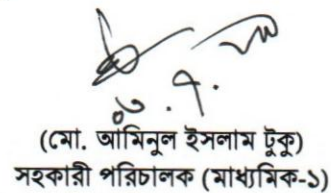 (মো. আমিনুল ইসলাম টুকু)
সহকারী পরিচালক (মাধ্যমিক-১)